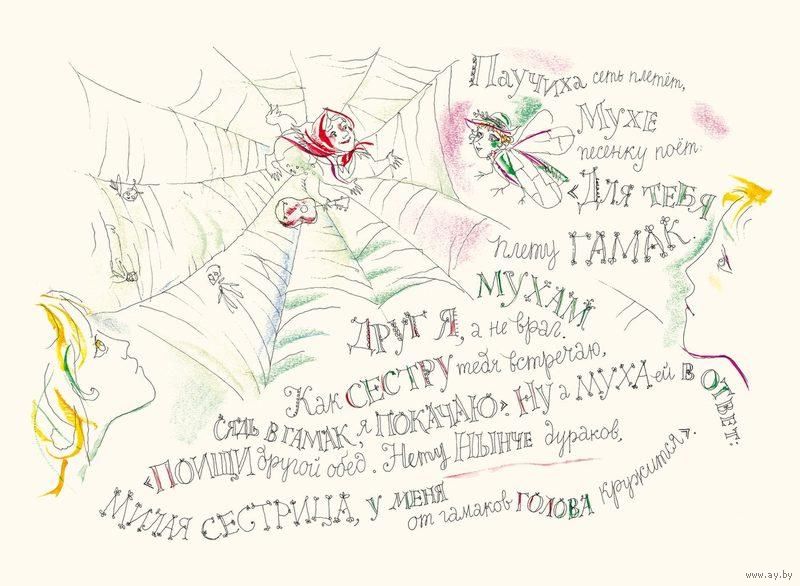 Паучиха сеть плетёт,
Мухе
песенку поёт:
«Для тебя
плету гамак.
Мухам
друг я, а не враг.
Как сестру тебя встречаю,
Сядь в гамак, я покачаю». Ну а муха ей в ответ:
«Поищи другой обед. Нету нынче дураков,
Милая сестрица, у меня
от гамаков голова кружится».
www.ay.by